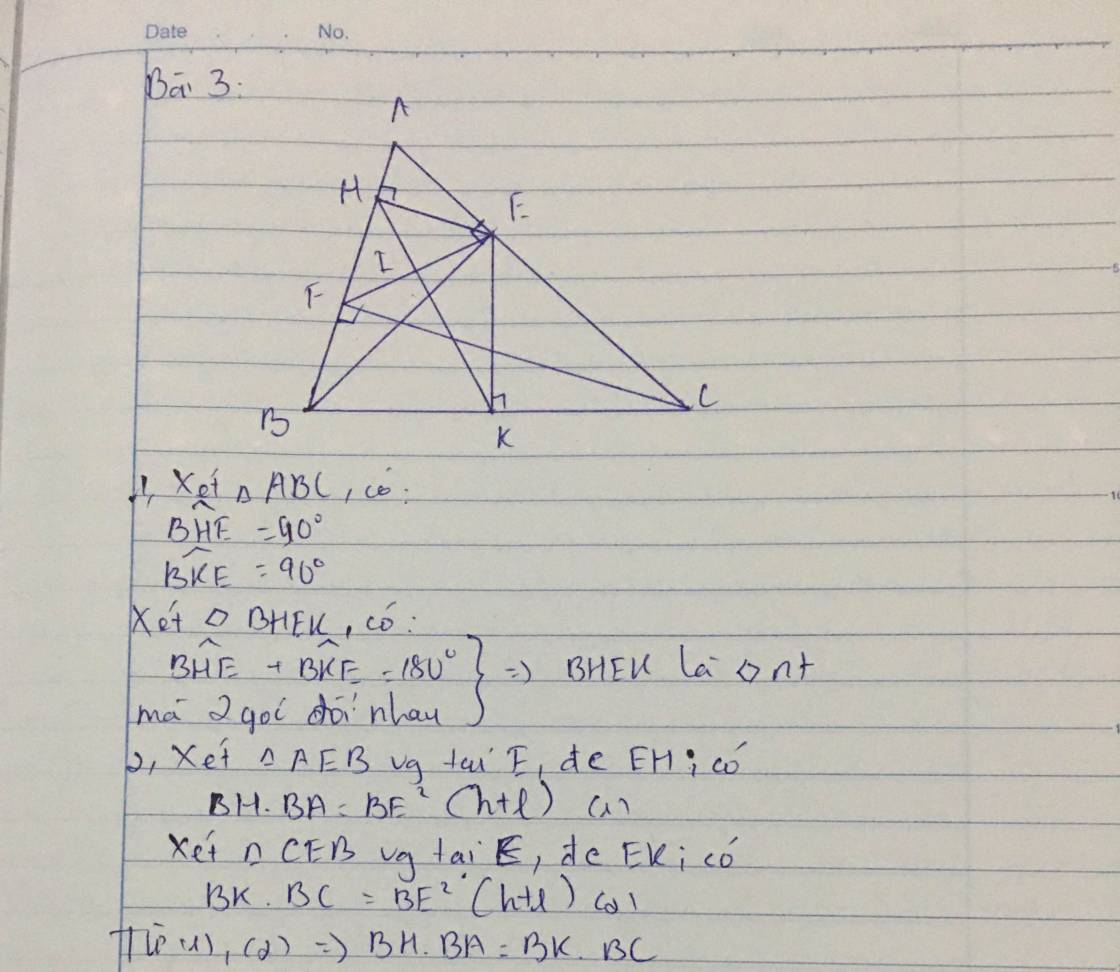 Date No.
Bài 3:
A
H
E
I
F
B
K
C
1, Xét △ ABC, có:
BHE = 90°
BKE = 90°
Xét ▱ BHEK, có:
BHE + BKE = 180° } => BHEK là ▱ nt
mà 2 góc đối nhau
2, Xét △ AEB vg tại E, đc EH; có
BH.BA = BE² (htl) (1)
Xét △ CEB vg tại E, đc EK; có
BK.BC = BE² (htl) (2)
Từ (1), (2) => BH.BA = BK.BC
5
10